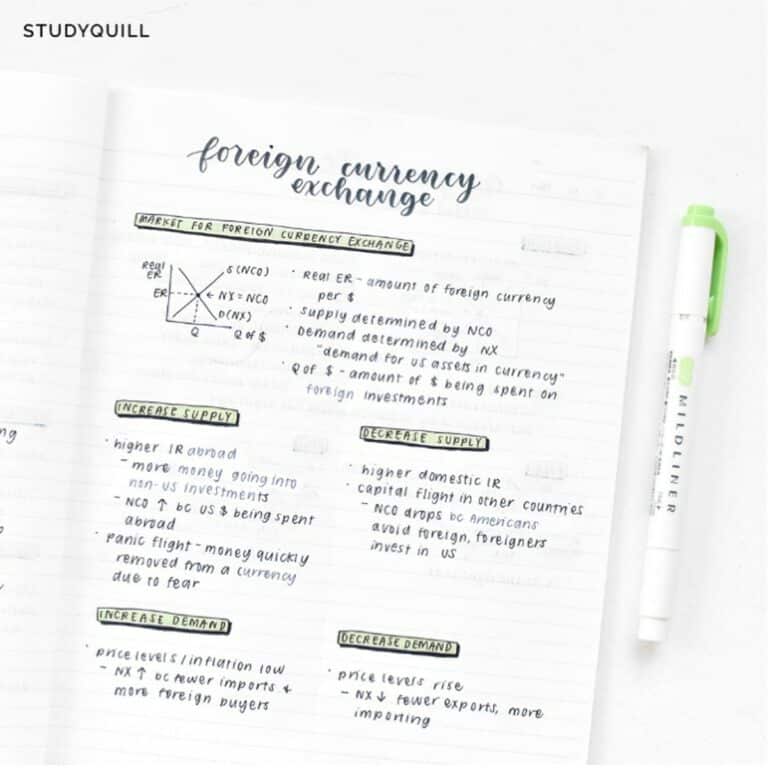 STUDYQUILL
foreign currency
exchange
MARKET FOR FOREIGN CURRENCY EXCHANGE
Real
ER
S (NCO)
ER
← NX = NCO
D (NX)
Q
Q of $
• Real ER - amount of foreign currency
per $
• supply determined by NCO
• Demand determined by NX
"demand for US assets in currency"
• Q of $ - amount of $ being spent on
foreign investments
INCREASE SUPPLY
• higher IR abroad
- more money going into
non-US investments
- NCO ↑ bc US $ being spent
abroad
• Panic flight - money quickly
removed from a currency
due to fear
DECREASE SUPPLY
• higher domestic IR
• capital flight in other countries
- NCO drops bc Americans
avoid foreign, foreigners
invest in US
INCREASE DEMAND
• price levels/inflation low
- NX ↑ bc fewer imports &
more foreign buyers
DECREASE DEMAND
• price levels rise
- NX ↓ fewer exports, more
importing
MILDLINER